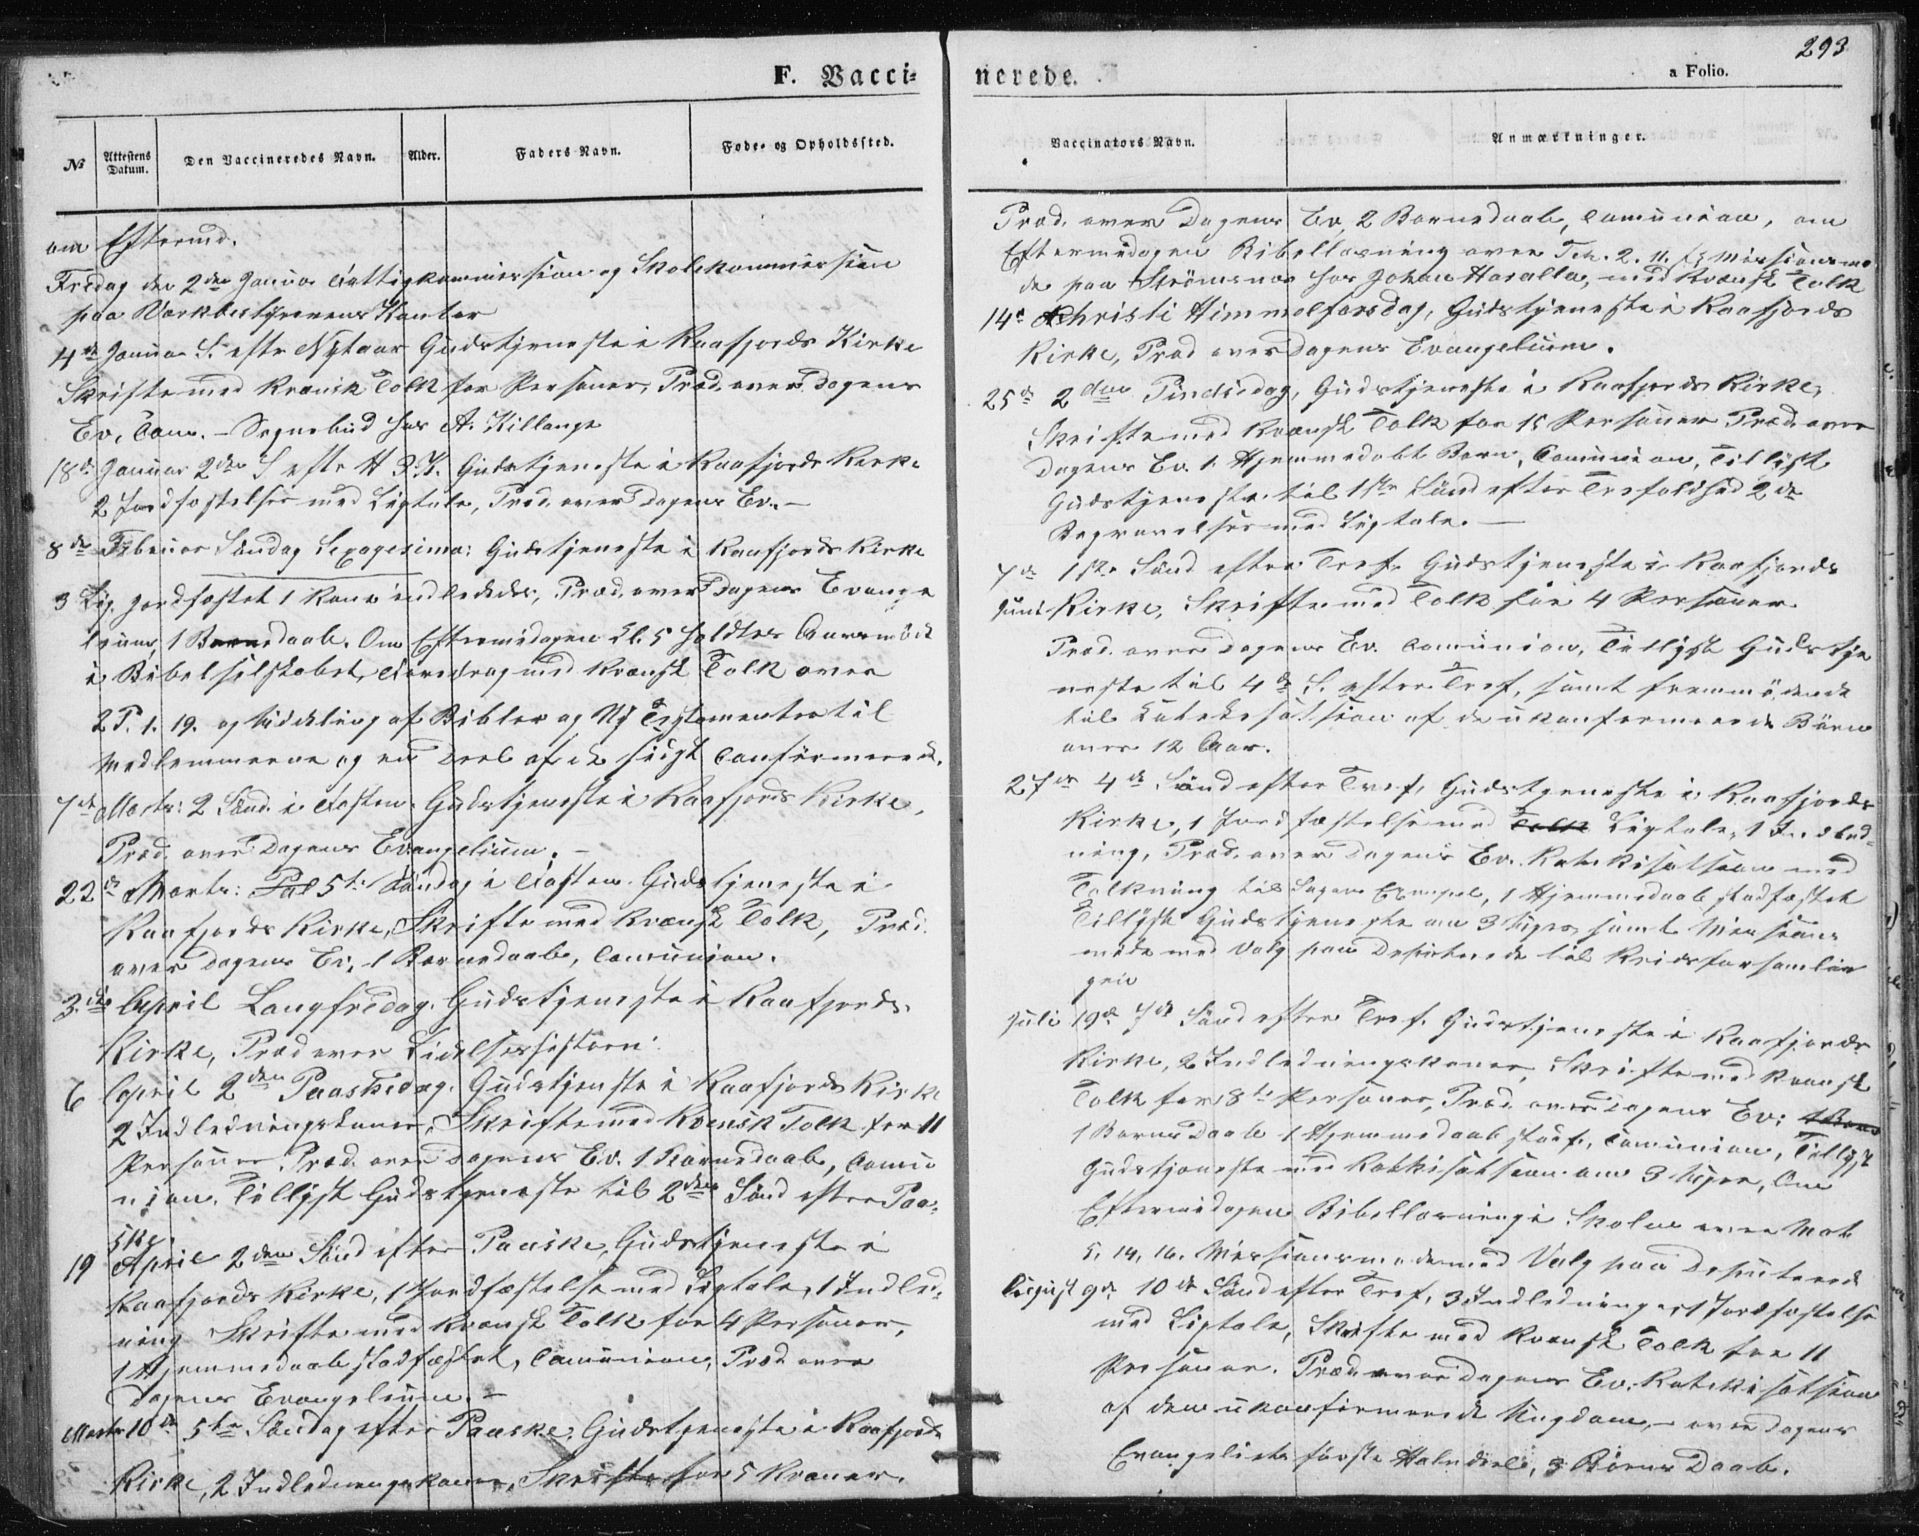 F. Vacci-
№ Attestens Datum. Den Vaccineredes Navn. Alder. Faders Navn. Føde- og Opholdssted.
om Eftermd.
Fredag den 2den Januar Fattigkommission og Skolekommission
paa Værkbestyrerens Kontor
4de Januar S. efter Nytaar Gudstjeneste i Kaafjords Kirke
Skrifte med Kvænsk Tolk for Personer, Præd. over Dagens
Ev. Com. – Sognebud hos A. Killange
18de Januar 2den S efter H 3 K. Gudstjeneste i Kaafjords Kirke
2 Jordfæstelser med Ligtale, Præd. over Dagens Ev. –
8de Februar Søndag Sexagesima: Gudstjeneste i Kaafjords Kirke
3 Lig jordfæstet 1 Kone indlededes, Præd. over Dagens Evange
lium, 1 Barnedaab. Om Eftermidagen Kl. 5 holdtes Aarsmøde
i Bibelselskabet, Foredrag med Kvænsk Tolk over
2 P. 1. 19. og Uddeling af Bibler og Ny Testamenter til
Medlemmerne og en Deel af de sidst Confirmerede.
7de Marts: 2 Sønd. i Fasten. Gudstjeneste i Kaafjords Kirke,
Præd. over Dagens Evangelium. –
22de Marts: 5te Søndag i Fasten. Gudstjeneste i
Kaafjords Kirke, Skrifte med Kvænsk Tolk, Præd.
over Dagens Ev, 1 Barnedaab, Comunion.
3die April Langfredag. Gudstjeneste i Kaafjords
Kirke, Præd over Lidelseshistorien
6 April 2den Paaskedag. Gudstjeneste i Kaafjords Kirke
2 Indledningskoner, Skrifte med Kvænsk Tolk for 11
Personer Præd. over Dagens Ev. 1 Barnedaab, Comu
nion. Tillyst Gudstjeneste til 2den Sønd efter Paa-
ske.
19 April 2den Sønd efter Paaske, Gudstjeneste i
Kaafjords Kirke, 1 Jordfæstelse med Ligtale, 1 Indled-
ning Skrifte med Kvænsk Tolk for 4 Personer,
1 Hjemmedaab stadfæstet, Comunion, Præd over
Dagens Evangelium. –
Marts 10de 5te Søndag efter Paaske, Gudstjeneste i Kaafjords
Kirke, 2 Indledningskoner, Skrifte for 5 Kvæner.
293
nerede. a Folio.
Vaccinators Navn. Anmærkninger.
Præd. over Dagens Ev, 2 Barnedaab, Comunion, om
Eftermidagen Bibellæsning over 2. 11. Missionsmø
de paa Strømsnæs hos Johan Haralla, med Kvænsk Tolk
14de Christi Himmelfarsdag, Gudstjeneste i Kaafjords
Kirke, Præd over Dagens Evangelium.
25de 2den Pindsedag, Gudstjeneste i Kaafjords Kirke,
Skrifte med Kvænsk Tolk for 15 Personer Præd. over
Dagens Ev. 1 Hjemmedøbt Barn, Comunion, Tillyst
Gudstjeneste til 1ste Sønd efter Trefoldhed 2de
Begravelser med Ligtale. –
7de 1ste Sønd efter Tref. Gudstjeneste i Kaafjords
Juni Kirke, Skrifte med Tolk for 4 Personer
Præd. over Dagens Ev. Comunion, Tillyst Gudstje
neste til 4de S. efter Tref, samt fremmødende
til Katekisation af de ukonfirmerede Børn
over 12 Aar.
27de 4de Sønd efter Tref, Gudstjeneste i Kaafjords
Kirke, 1 Jordfæstelse med Tolk Ligtale, 1 Indled-
ning, Præd. over Dagens Ev. Katekisation med
Tolkning til Dagens, 1 Hjemmedaab stadfæstet
Tillyst Gudstjeneste om 3 Uger, samt Missions
møde med Valg paa Deputerede til Kredsforsamlin
gen
Juli 19de 7de Sønd efter Tref. Gudstjeneste i Kaafjords
Kirke, 2 Indledningskoner, Skrifte med Kvænsk
Tolk for 8te Personer, Præd. over Dagens Ev:
1 Barnedaab 1 Hjemmedaab stadf., Comunion, Tillyst
Gudstjeneste med Katekisation om 3 Uger, Om
Eftermidagen Bibellæsning i Skolen over Mat
5, 14, 16. Missionsmøde med Valg paa Deputerede
August 9de 10de Sønd efter Tref, 3 Indledninger, 1 Jordfæstelse
med Ligtale, Skrifte med Kvænsk Tolk for 11
Personer. Præd over Dagens Ev. Katekisation
af den ukonfirmerede Ungdom, – over Dagens
Evangeliets første Halvdeel, 3 Børns Daab.